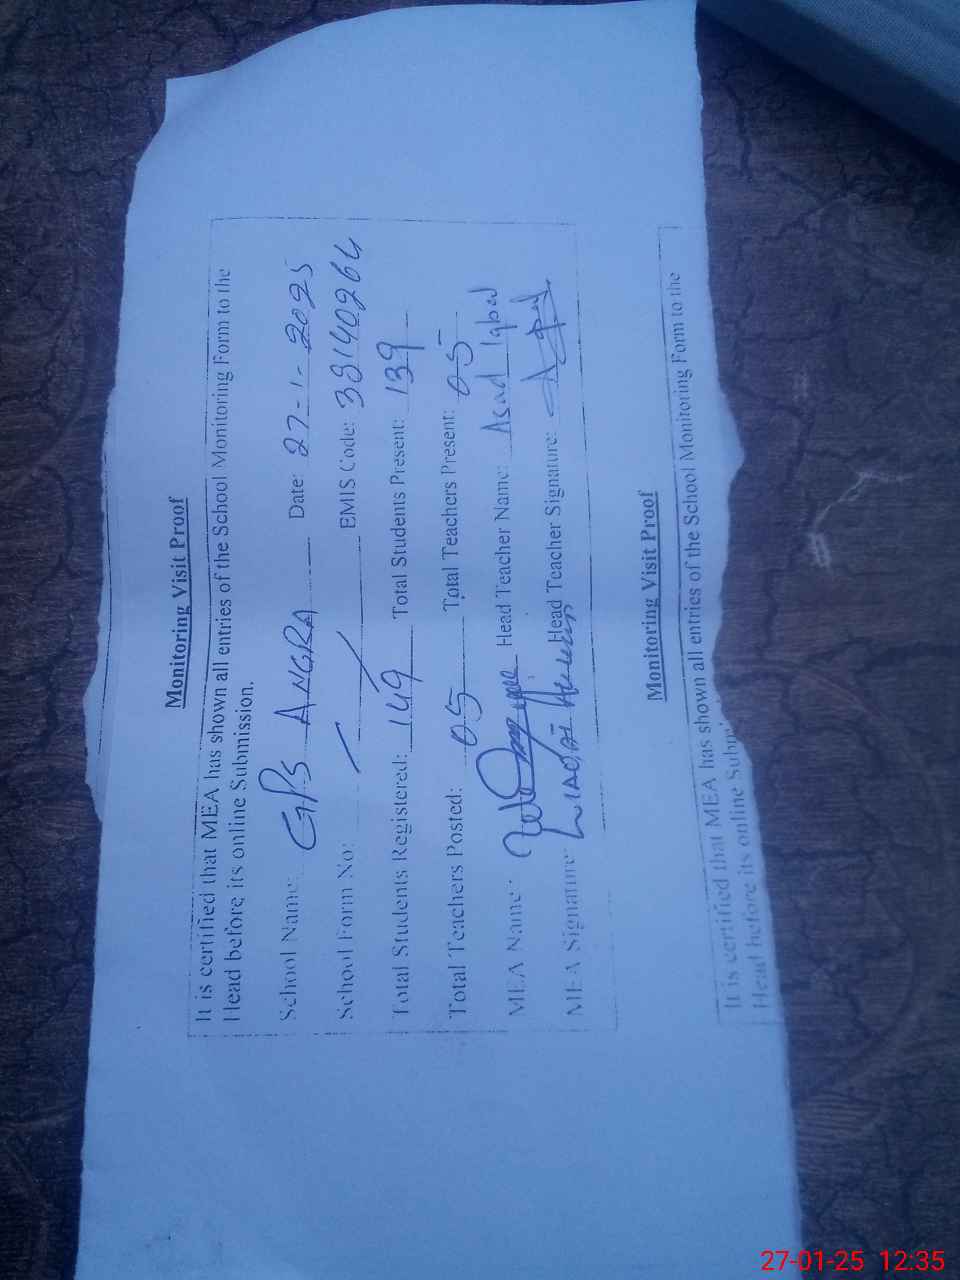 Monitoring Visit Proof
It is certified that MEA has shown all entries of the School Monitoring Form to the
Head before its online Submission.
School Name: GPS ANGRA Date: 27-1-2025
School Form No: EMIS Code: 38140264
Total Students Registered: 149 Total Students Present: 139
Total Teachers Posted: 05 Total Teachers Present: 05
MEA Name: Head Teacher Name: Asad Iqbal
MEA Signature: Head Teacher Signature:
Monitoring Visit Proof
It is certified that MEA has shown all entries of the School Monitoring Form to the
Head before its online Subm
27-01-25 12:35